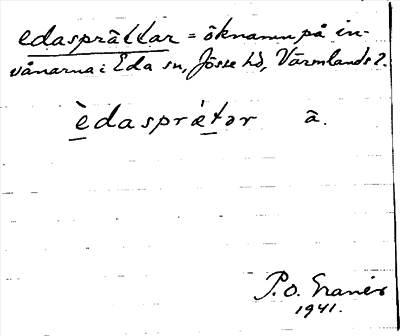 edasprättar = öknamn på in-
vånarna i Eda sn, Jösse hd, Värmlands l.
èdasprätər ä.
P. O.
1941.